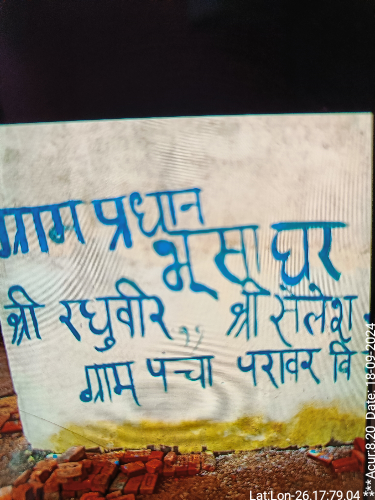 ग्राम प्रधान
भूसा घर
श्री रघुवीर श्री सैलेश
ग्राम पंचा परावर वि
Lat:Lon-26.17:79.04
***Acur:8.20 Date: 18-09-2024